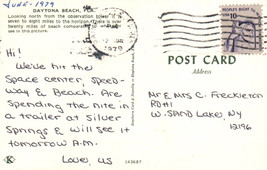 JUNE - 1979
DAYTONA BEACH, FLA.
Looking north from the observation tower it is
seven to eight miles to the horizon. There is over
twenty miles of beach
see in this picture.
PM
1979
PEOPLES RIGHT
USA 10c
Hi!
We've hit the
Space center, Speed-
way & Beach. Are
Spending the nite in
a trailer at Silver
Springs & will see it
tomorrow A.M.
Love, US
K
143687
POST CARD
Address
Mr & Mrs C. Freckleton
RD#1
W. SAND LAKE, NY
12196